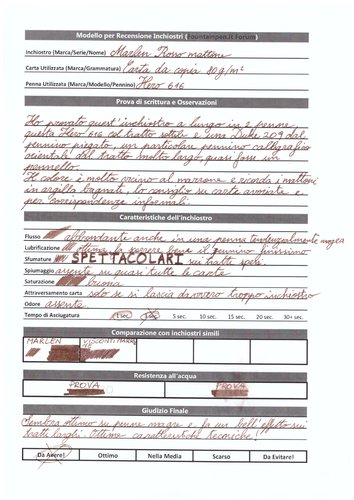 Modello per Recensione Inchiostri (Fountainpen.it Forum)
Inchiostro (Marca/Serie/Nome) Marlen Rosso mattone
Carta Utilizzata (Marca/Grammatura) Carta da copia 80g/m²
Penna Utilizzata (Marca/Modello/Pennino) Hero 616
Prova di scrittura e Osservazioni
Ho provato quest'inchiostro a lungo in 2 penne
questa Hero 616 col tratto sottile e Duke 209 dal
pennino piegato, un particolare pennino calligrafico
orientale dal tratto molto largo, quasi fosse un
pennello.
Il colore è molto vicino al marrone e ricorda i mattoni
in argilla bagnati, lo consiglio su carte avoriate e
per corrispondenze informali.
Caratteristiche dell'inchiostro
Flusso abbondante anche in una penna tendenzialmente magra
Lubrificazione ottima la pennino
Sfumature SPETTACOLARI su tratti
Spiumaggio assente su quasi tutte le carte
Saturazione buona
Attraversamento carta solo se si lascia davvero troppo inchiostro
Odore assente
Tempo di Asciugatura 1 sec. 5 sec. 10 sec. 15 sec. 20 sec. 30+ sec.
Comparazione con inchiostri simili
MARLEN VISCONTI
Resistenza all'acqua
PROVA PROVA
Giudizio Finale
Sembra ottimo su penne magre e fa un bell'effetto sui
tratti larghi. Ottime caratteristiche tecniche!
Da Avere! Ottimo Nella Media Scarso Da Evitare!